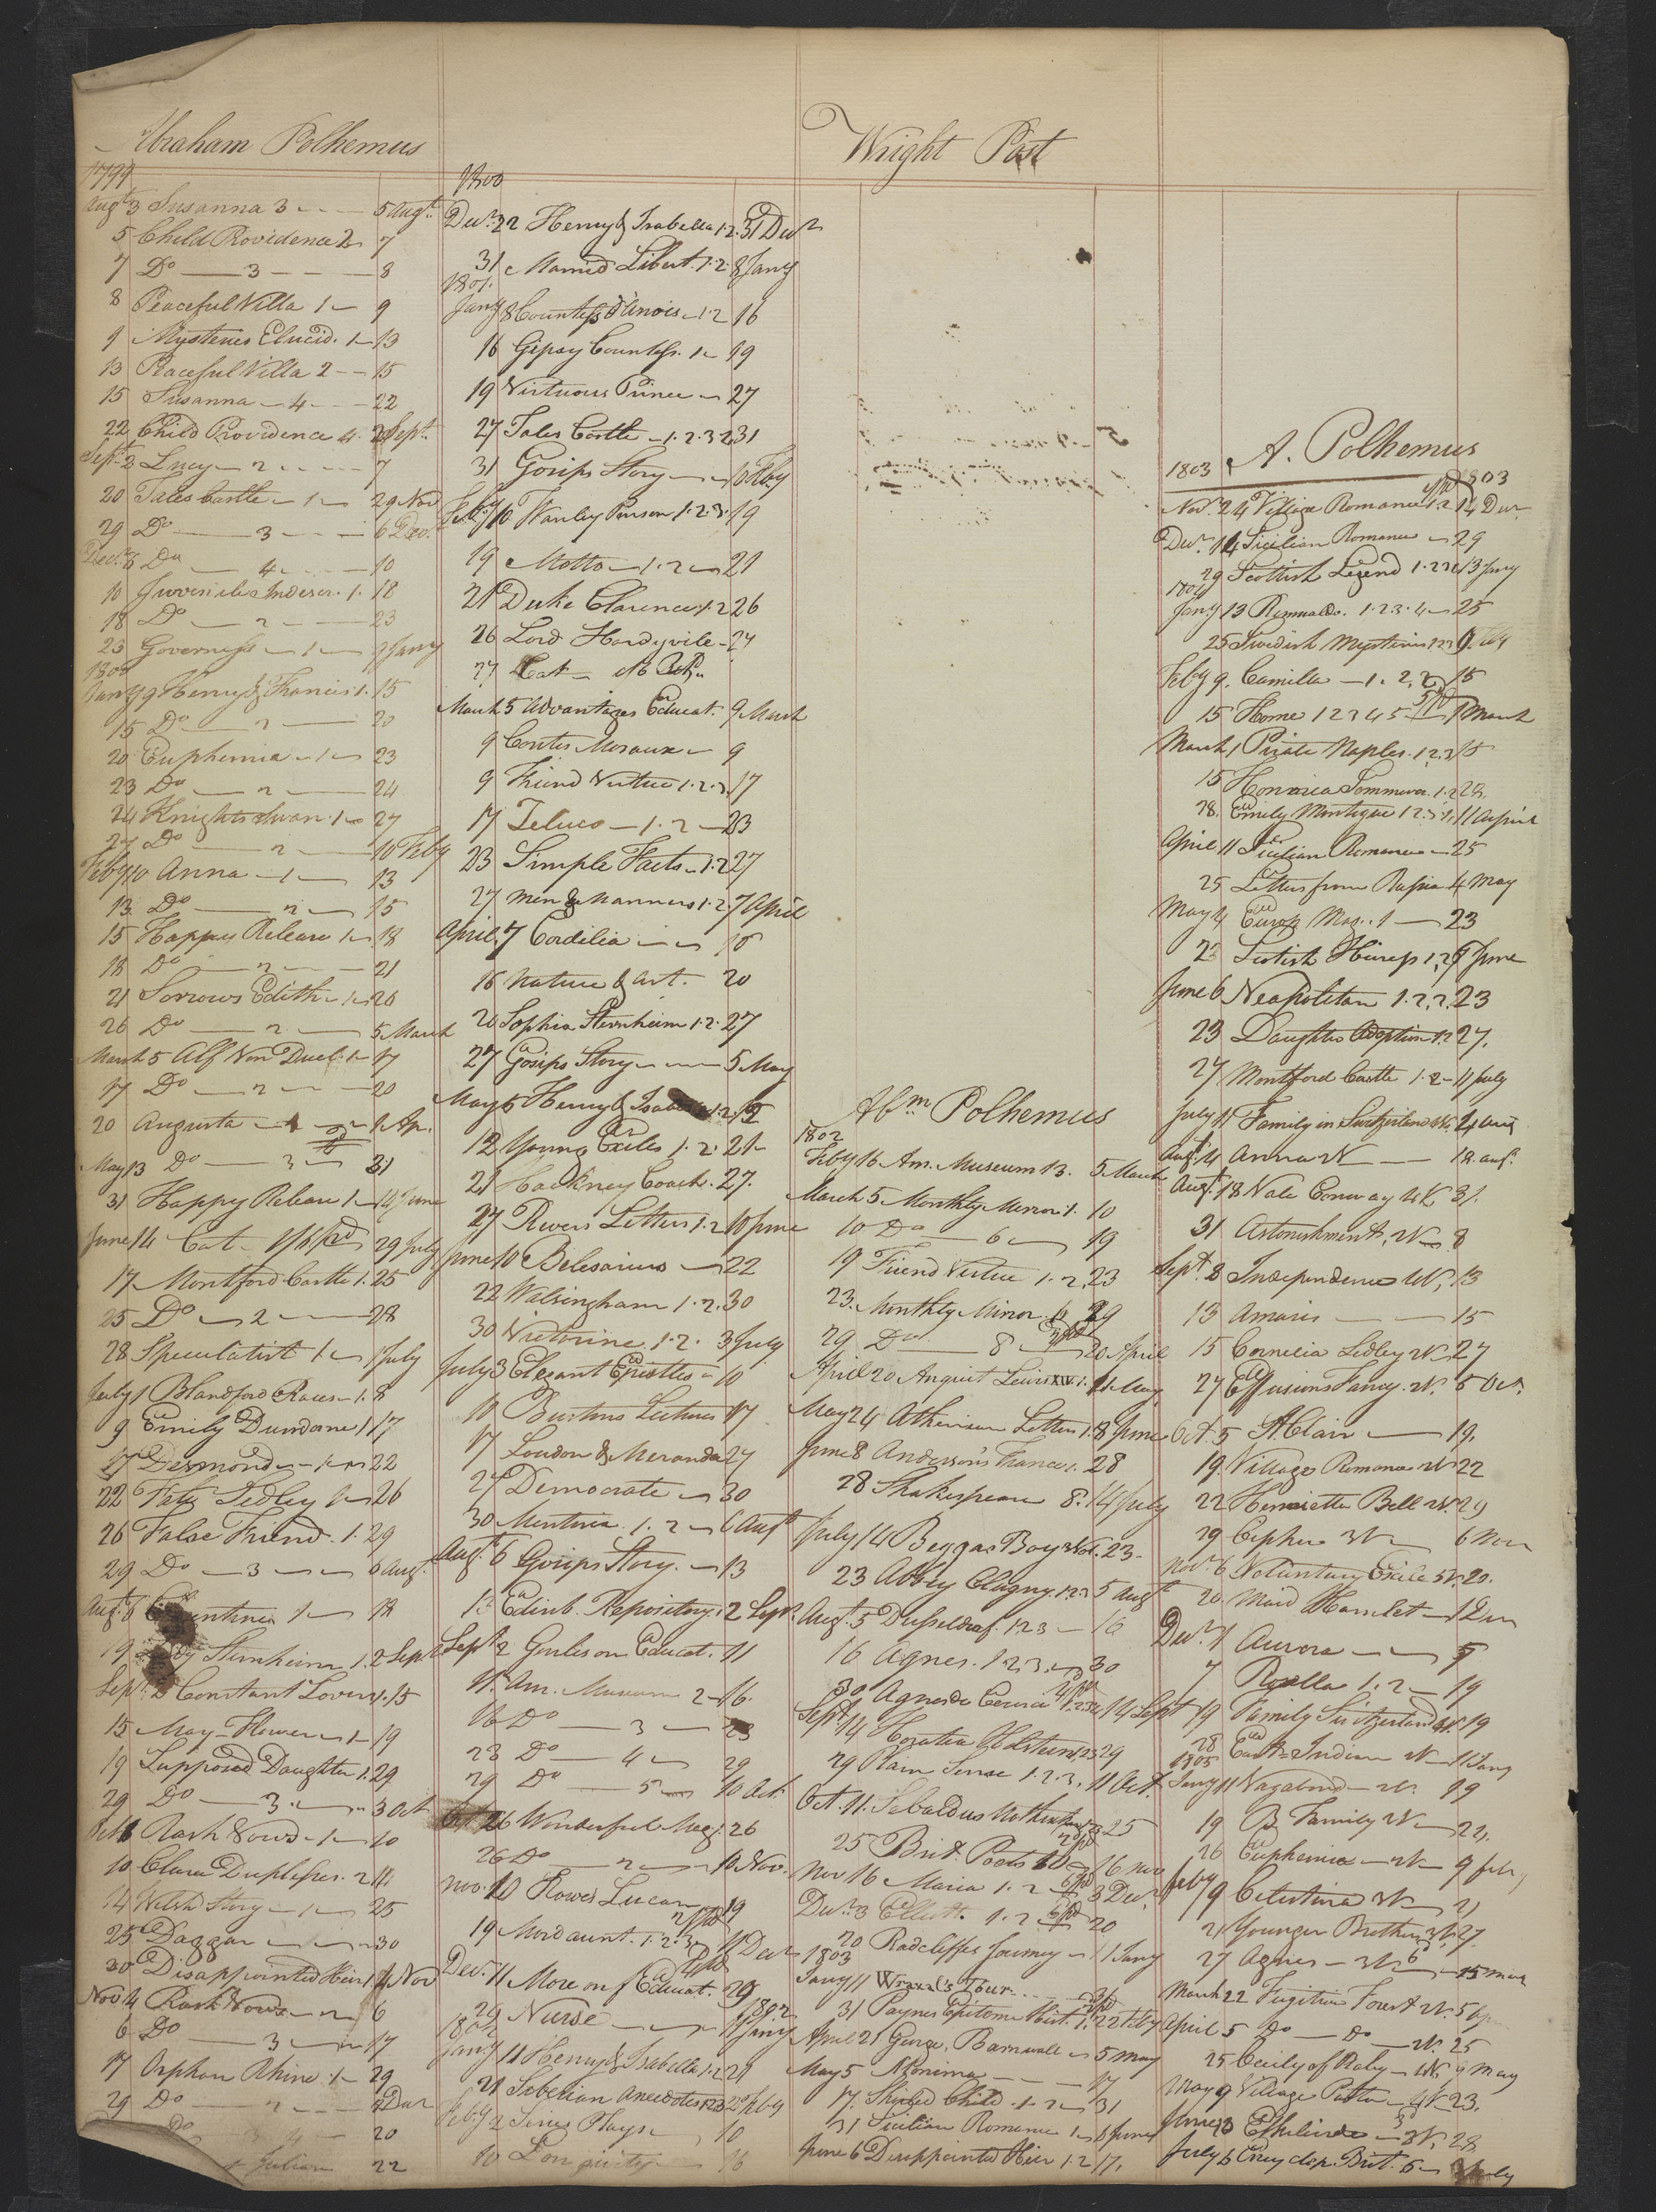 Abraham Polhemus
1799
Augt 3 Susanna 3 - - - 5 Augt
5 Child Providence 2 7
7 Do - 3 - - - 8
8 Peaceful Villa 1 - 9
9 Mysteries Elucid. 1 - 13
13 Peaceful Villa 2 - - 15
15 Susanna - 4 - - 22
22 Child Providence 4. 2 Sept.
Sept. 2 Lucy - 2 - - - 7
20 Tales Castle - 1 - 29 Nov
29 Do - 3 - - - 6 Dec.
Decr. 6 Do - 4 - - - 10
10 Juvenile Indiscr. 1. 18
18 Do - 2 - - 23
23 Governess - 1 - 9 Jany
1800
Jany 9 Henry & Frances 1. 15
15 Do - 2 - 20
20 Euphemia - 1 - 23
23 Do - 2 - 24
24 Knights Swan 1 - 27
27 Do - 2 - 10 Feby
Feby 10 Anna - 1 - 13
13 Do - 2 - 15
15 Happy Release 1 - 18
18 Do - 2 - 21
21 Sorrows Edith - 1 - 26
26 Do - 2 - 5 March
March 5 Alf Von Duel. 1 - 17
17 Do - 2 - - 20
20 Augusta - 1 - 1 Ap.
May 13 Do - 3 - 31
31 Happy Release 1 - 14 June
June 14 Cat - 29 July
17 Montford Castle 1. 25
25 Do - 2 - 28
28 Speculatist 1 - 1 July
July 1 Blandford Races - 1. 8
9 Emily Dundorne 1 17
17 Desmond - 1 - 22
22 Fate Sedley 1 - 26
26 False Friend. 1. 29
29 Do - 3 - 6 Augt.
Augt. 6 1 - 18
19 Sternheim 1. 2 Sept
Sept. 2 Constant Lover 1. 15
15 May-Flower - 1 - 19
19 Supposed Daughter 1. 29
29 Do - 3 - 3 Oct
Oct 6 Rash Vows - 1 - 10
10 Clara Duplesses. 2 14
14 Welsh Story - 1 - 25
25 Dagger - 30
30 Disappointed Heir 1 4 Nov
Nov 4 Rash Vows - 2 6
6 Do - 3 - 17
17 Orphan Rhine 1 - 29
29 Do - 2 - - Decr
Do 20
Julian 22
1800
Decr. 22 Henry & Isabella 1.2. 31 Decr
31 Married Libert. 1.2. 8 Jany
1801.
Jany 8 Countess d'Anois - 1.2 16
16 Gipsy Countess. 1 - 19
19 Virtuous Prince - 27
27 Tales Castle - 1.2.3 31
31 Gosips Story - 10 Feby
Feby 10 Wanley Penson 1.2.3. 19
19 Motto - 1.2 - 21
21 Duke Clarence 1.2 26
26 Lord Hardyvile - 27
27 Cat -
March 5 Advantages Educat. 9 March
9 Contes Moraux - 9
9 Friend Virtue 1.2.3. 17
17 Zeluco - 1.2 - 23
23 Simple Facts - 1.2 27
27 Men & Manners 1.2. 7 April
April 7 Cordelia - 16
16 Nature & Art. 20
20 Sophia Sternheim 1.2. 27
27 Gosips Story - 5 May
May 5 Henry & Isabella 1.2. 12
12 Young Exiles 1.2. 21
21 Hackney Coach. 27.
27 Rivers Letters 1.2 10 June
June 10 Belesarius - 22
22 Walsingham 1.2. 30
30 Victorine. 1.2. 3 July
July 3 Elegant Epistles - 10
10 Burtons Lectures 17
17 Loudon & Meranda 27
27 Democrate - 30
30 Mentoria 1.2 - 6 Augt
Augt. 6 Gosips Story - 13
13 Edinb. Repository. 1 2 Sept.
Sept 2 Genlis on Educat. 11
11. Am. Museum 2 - 16.
16 Do - 3 - 23
23 Do - 4 - 29
29 Do - 5 - 10 Oct.
Oct 16 Wonderful Mag. 26
26 Do - 2 - 10 Nov.
Nov. 10 Rowes Lucan 19
19 Mordaunt. 1.2.3 11 Decr
Dec. 11 More on f Educat. 29
29 Nurse - 11 Jany
1802
Jany 11 Henry & Isabella 1.2 21
21 Siberian Anecdotes 1.2.3 2 Feby
Feby 2 Siries Plays 10
10 16
Wright Post
Abm Polhemus
1802
Feby 16 Am. Museum 13. 5 March
March 5 Monthly Mirror 1. 10
10 Do - 6 - 19
19 Friend Virtue 1.2. 23
23. Monthly Mirror 29
29 Do - 8 20 April
April 20 Anquit Lewis XIV. 1. 11 May
May 24 Athenian Letters 1. 8 June
June 8 Anderson's France 1. 28
28 Shakespeare 8. 14 July
July 14 Beggar Boy 23-
23 Abbey Clugny. 1.2.3 5 Augt
Augt. 5 Dusseldorf. 1.2.3 - 16
16 Agnes. 1.2.3. - 30
30 Agnes de Courci 1.2.3.4 14 Sept
Sept. 14 Horatia Holstein 1.2.3 29
29 Plain Sense 1.2.3. 11 Oct.
Oct. 11. Sebaldus Nothanker 1.2.3 25
25 Brit. Poets 16 Nov
Nov 16 Maria 1.2 3 Decr.
Decr. 3 Elliott. 1.2 20
20 Radcliffes Journey - 11 Jany
1803
Jany 11 Wraxal's Tour - 31
31 Paynes Epitome Hist. 1. 22 Feby
April 21 George Barnwall - 5 May
May 5 Monima - - - 17
17. Shrined Child - 1.2 - 31
31 Sicilian Romance 1 - 6 June
June 6 Disappointed Heir 1.2 17.
A. Polhemus
1803 1803
Nov. 24 Village Romance 1.2 14 Decr.
Decr. 14 Sicilian Romance - 29
29 Scottish Legend 1.2.3.4 13 Jany
1804
Jany 13 Romualdo. 1.2.3.4 - 25
25 Swedish Mysteries 1.2.3 9. Feby
Feby 9. Camilla - 1.2.3 15
15 Home 1 2 3 4 5 1 March
March 1 Pirate Naples. 1.2.3 15
15 Honoria Sommervi. 1.2 28.
28. Emily Montague 1.2.3.4. 11 April
April 11 Sicilian Romance - 25
25 Letters from Russia 4 May
May 4 Europ Mag. 1 - 23
23 Scotish Heiress 1.2 6 June
June 6 Neapolitan 1.2.3. 23
23 Daughter Adoption 1.2 27.
27 Montford Castle 1.2 - 11 July
July 11 Family in Switzerland 4 Aug
Augt. 4 Anna W - - 18 Aug.
Augt. 18 Vale Conway 4 V. 31.
31 Astonishment, 2V - 8
Sept. 8 Independence 13
13 Amasis - - 15
15 Cornelia Sedley 27
27 Effusions Fancy. 5 Oct.
Oct. 5 St Clair - 19.
19. Village Romance 22
22 Henrietta Bell 29
29 Cypher 3V - 6 Nov
Nov. 6 Voluntary Exile 5V. 20.
20 Maid Hamlet - 1 Decr
Decr. 1 Aurora - - 7
7 Rosella 1.2 - 19
19 Family Switzerland 19
28 East Indian - 11 Jany
1805
Jany 11 Vagabond - 19
19 B Family 22.
26 Euphemia - 9 Feby
Feby 9 Celestina 21
21 Younger Brother 27.
27 Agnes - 3V - 15 Mar
March 22 Fugitive Forest 5 Apr
April 5 Do - Do - 25
25 Cecily of Raby - 4V. 9 May
May 9 Village Pastor - 23.
June 13 Ethelinde - 3V. 28
July 6 Encyclop. Brit. 6 - July